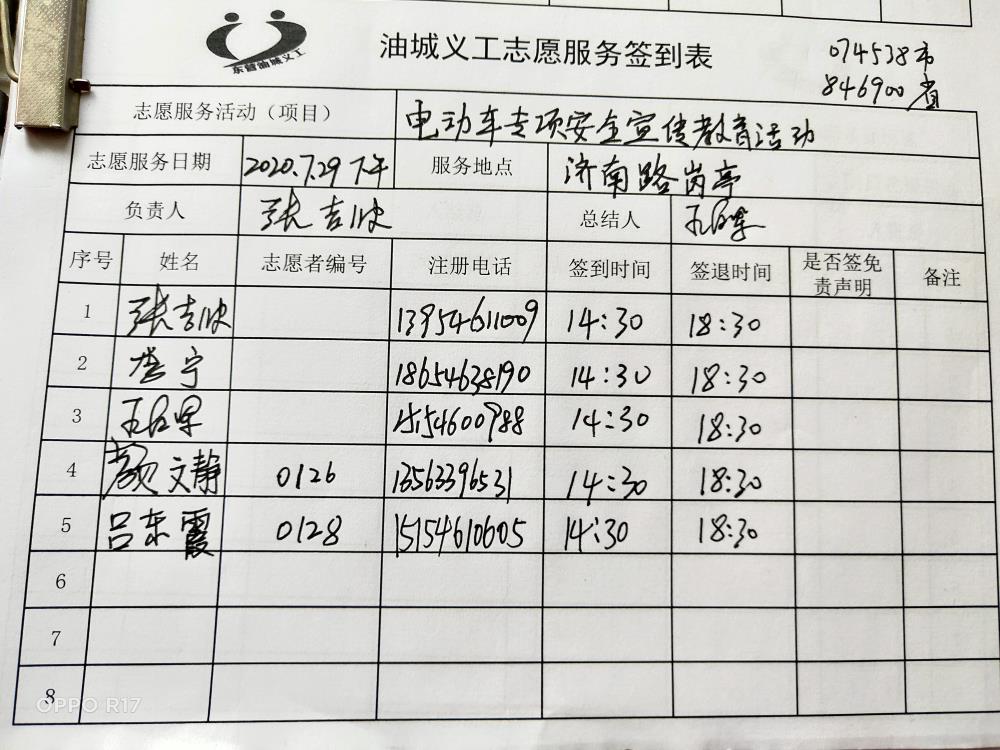 东营油城义工
油城义工志愿服务签到表
074538市
846900省
志愿服务活动（项目） 电动车专项安全宣传教育活动
志愿服务日期 2020.7.29 下午 服务地点 济南路岗亭
负责人 张吉欣 总结人
序号 姓名 志愿者编号 注册电话 签到时间 签退时间 是否签免责声明 备注
1 张吉欣 13954611009 14:30 18:30
2 宁 18654638190 14:30 18:30
3 15154600988 14:30 18:30
4 颜文静 0126 13563396531 14:30 18:30
5 吕东霞 0128 15154610605 14:30 18:30
6
7
8
OPPO R17